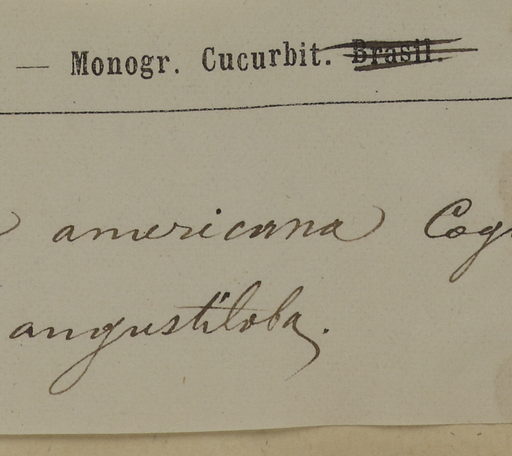 — Monogr. Cucurbit. Brasil.
americana Cogn
angustiloba.